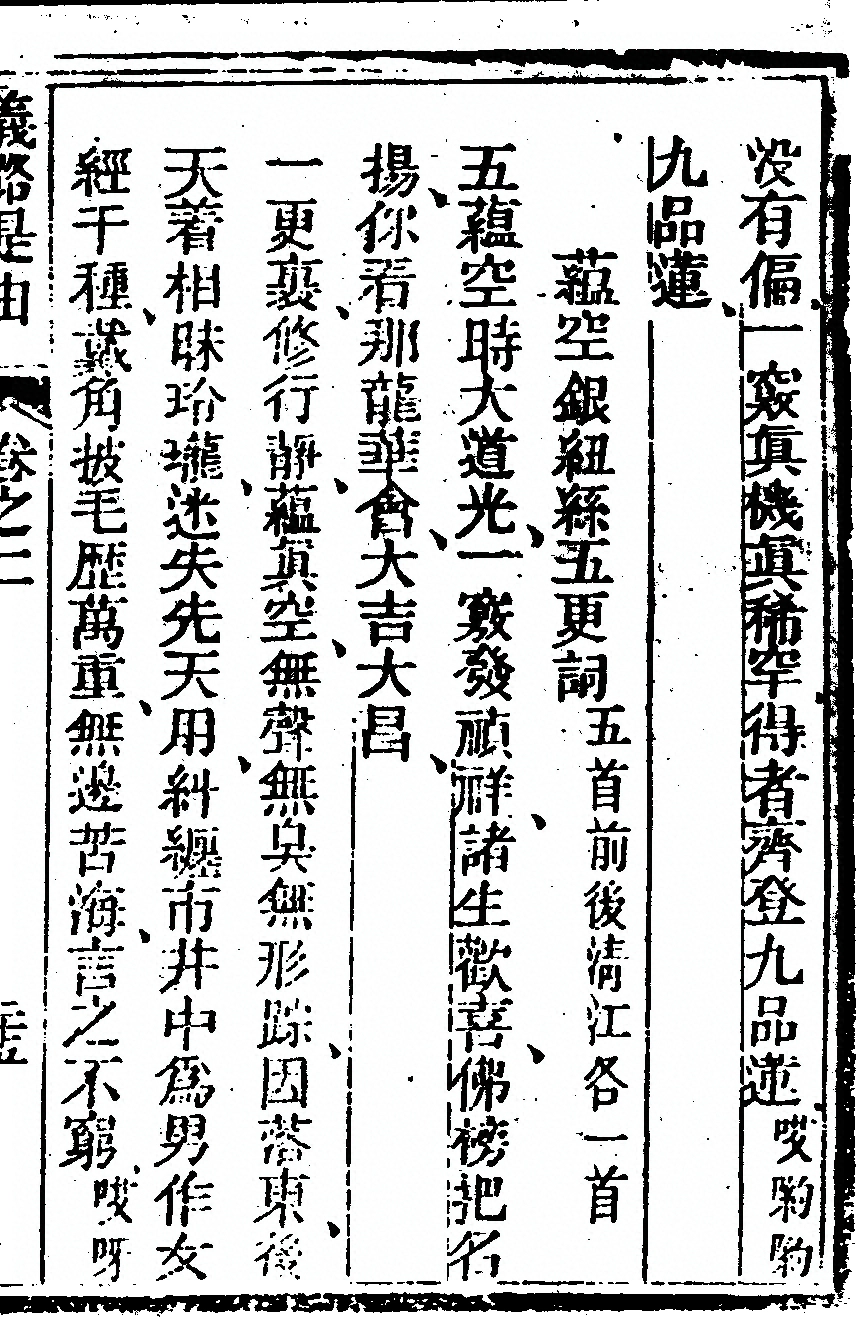 没有偏一竅眞機眞稀罕得者齊登九品蓮哎喲喲
九品蓮
蘊空銀紐絲五更詞五首前後清江各一首
五蘊空時大道光一竅發禎祥諸生歡喜佛榜把名
揚你看那龍華會大吉大昌
一更裏修行靜蘊眞空無聲無臭無形踪因落東後
天着相昧玲瓏迷失先天用糾纏市井中爲男作女
經千種戴角披毛歷萬重無邊苦海言之不窮哎呀
義路是由
卷之二